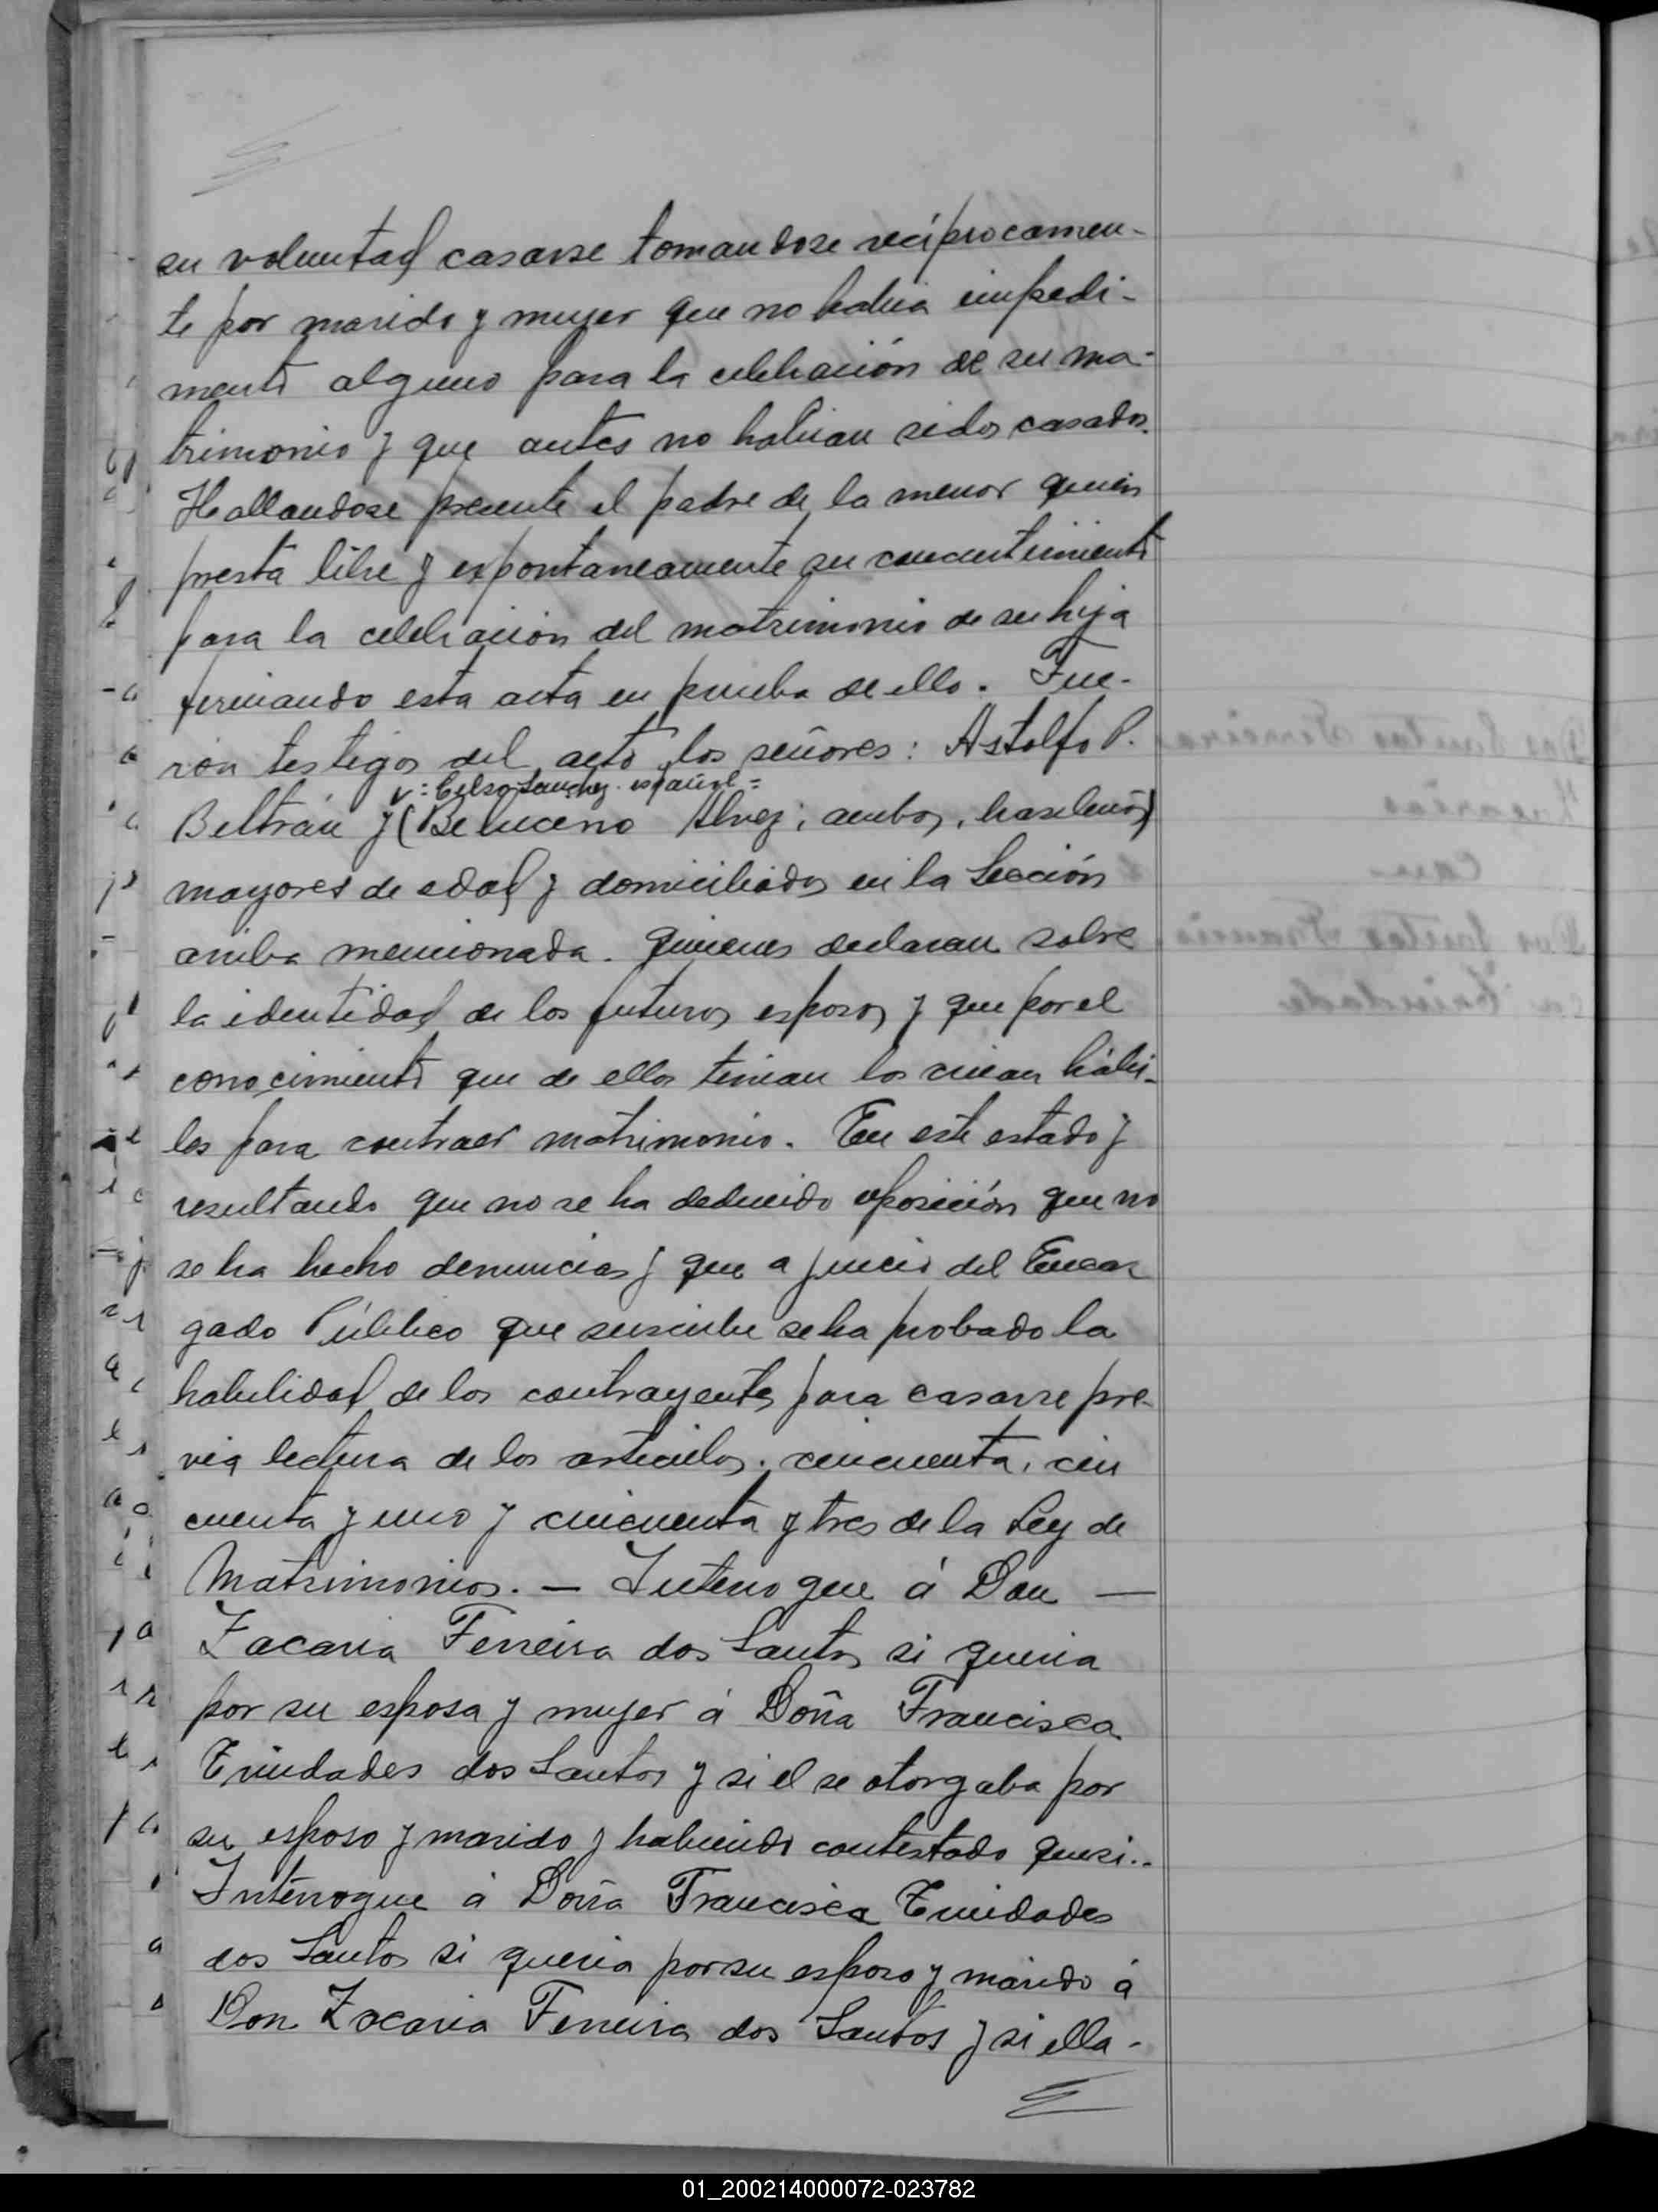 su voluntad casarse tomandose recíprocamen-
te por marido y mujer que no habia impedi-
mento alguno para la celebración de su ma-
trimonio y que antes no habian sidos casados.
Hallandose presente el padre de la menor quien
presta libre y expontaneamente su concentimiento
para la celebración del matrimonio de su hija
firmando esta acta en prueba de ello. Fue-
ron testigos del acto los señores: Astolfo P.
v: Celso Sanchez. español =
Beltrán y (Beluceno Alvez; ambos, brasileños)
mayores de edad y domiciliados en la Sección
arriba mencionada. Quienes declaran sobre
la identidad de los futuros esposos y que por el
conocimiento que de ellos tenian los creian hábi-
les para contraer matrimonio. En este estado y
resultando que no se ha deducido oposición que no
se ha hecho denuncias y que a juicio del Encar
gado Público que suscribe se ha probado la
habilidad de los contrayentes para casarse pre-
via lectura de los articulos; cincuenta, cin
cuenta y uno y cincuenta y tres de la Ley de
Matrimonios. — Interrogue á Don —
Zacaria Ferreira dos Santos si queria
por su esposa y mujer á Doña Francisca
Trindades dos Santos y si el se otorgaba por
su esposo y marido y habiendo contestado que si..
Interrogue á Doña Francisca Trindades
dos Santos si queria por su esposo y marido á
Don Zacaria Ferreira dos Santos y si ella -
01_200214000072-023782